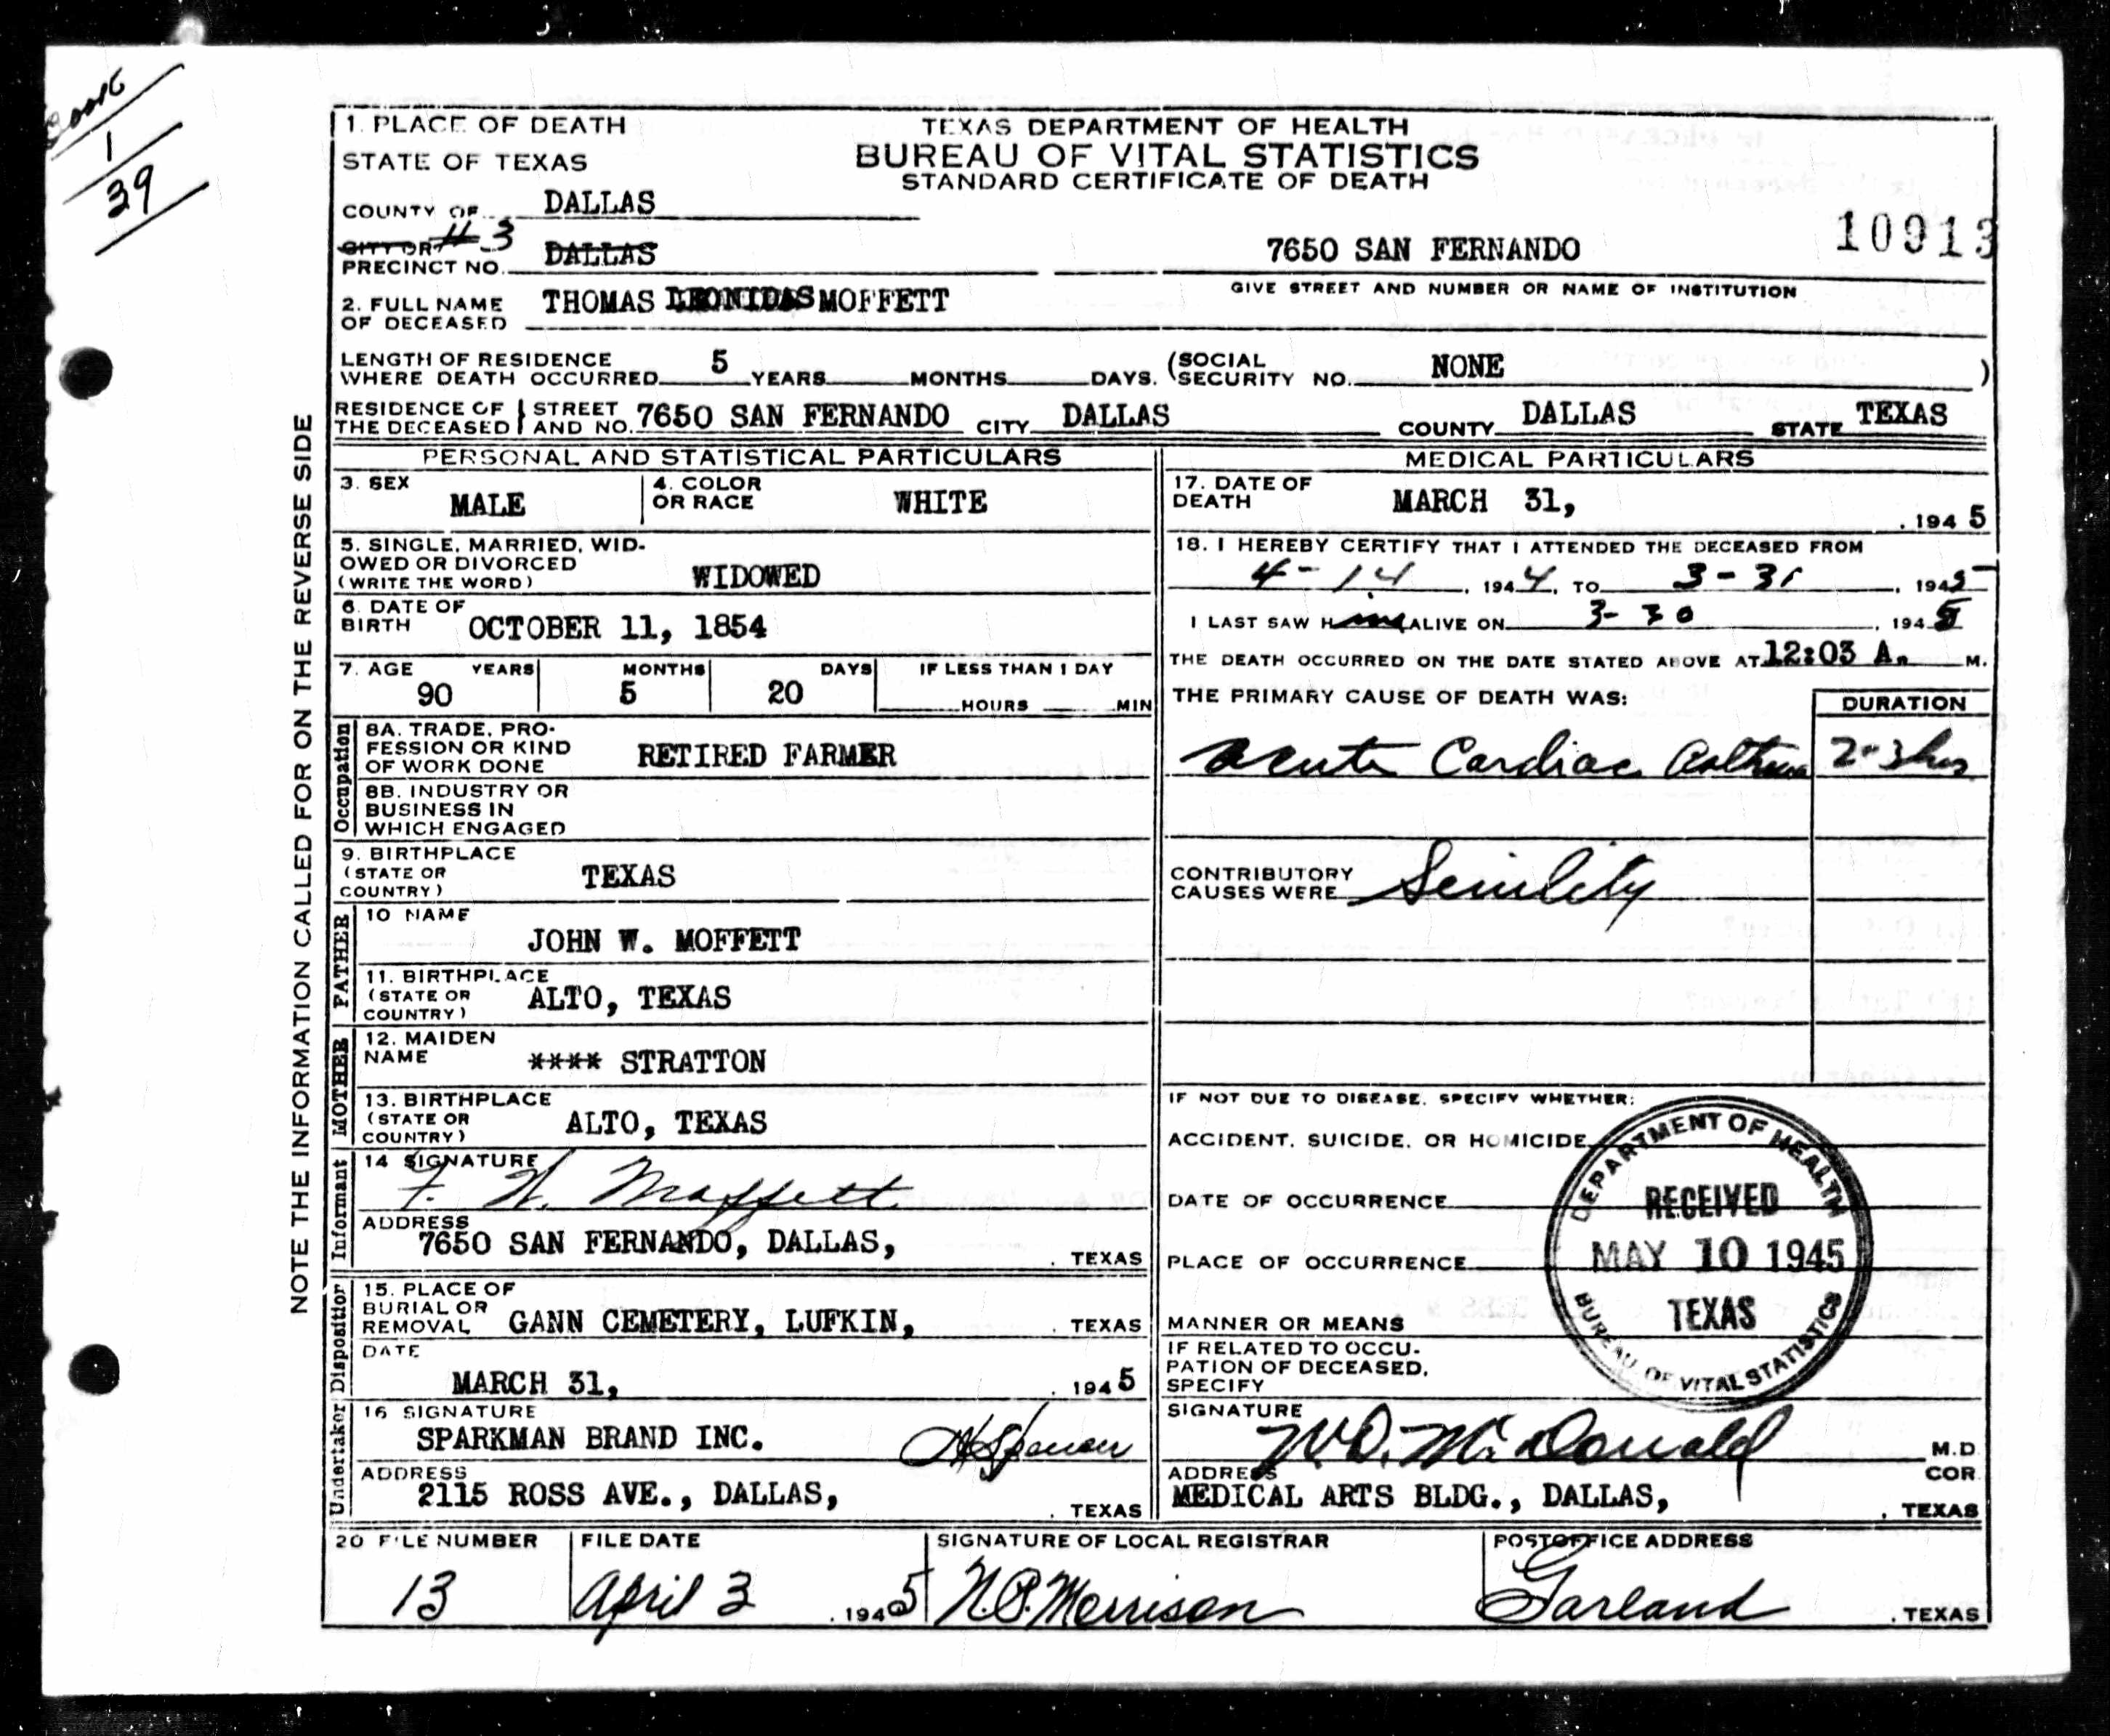 Book
1
39
NOTE THE INFORMATION CALLED FOR ON THE REVERSE SIDE
1. PLACE OF DEATH
STATE OF TEXAS
TEXAS DEPARTMENT OF HEALTH
BUREAU OF VITAL STATISTICS
STANDARD CERTIFICATE OF DEATH
COUNTY OF DALLAS
10913
CITY OR #3
PRECINCT NO. DALLAS
7650 SAN FERNANDO
GIVE STREET AND NUMBER OR NAME OF INSTITUTION
2. FULL NAME OF DECEASED THOMAS LEONIDAS MOFFETT
LENGTH OF RESIDENCE WHERE DEATH OCCURRED 5 YEARS MONTHS DAYS. (SOCIAL SECURITY NO. NONE )
RESIDENCE OF THE DECEASED STREET AND NO. 7650 SAN FERNANDO CITY DALLAS COUNTY DALLAS STATE TEXAS
PERSONAL AND STATISTICAL PARTICULARS
3. SEX MALE
4. COLOR OR RACE WHITE
5. SINGLE, MARRIED, WID-
OWED OR DIVORCED
(WRITE THE WORD) WIDOWED
6. DATE OF BIRTH OCTOBER 11, 1854
7. AGE YEARS MONTHS DAYS IF LESS THAN 1 DAY
90 5 20 HOURS MIN
Occupation
8A. TRADE, PRO-
FESSION OR KIND
OF WORK DONE RETIRED FARMER
8B. INDUSTRY OR
BUSINESS IN
WHICH ENGAGED
9. BIRTHPLACE
(STATE OR
COUNTRY) TEXAS
FATHER
10 NAME
JOHN W. MOFFETT
11. BIRTHPLACE
(STATE OR
COUNTRY) ALTO, TEXAS
MOTHER
12. MAIDEN
NAME **** STRATTON
13. BIRTHPLACE
(STATE OR
COUNTRY) ALTO, TEXAS
Informant
14 SIGNATURE
F. W. Moffett
ADDRESS
7650 SAN FERNANDO, DALLAS, . TEXAS
Disposition
15. PLACE OF
BURIAL OR
REMOVAL GANN CEMETERY, LUFKIN, . TEXAS
DATE
MARCH 31, . 1945
Undertaker
16 SIGNATURE
SPARKMAN BRAND INC.
ADDRESS
2115 ROSS AVE., DALLAS, . TEXAS
MEDICAL PARTICULARS
17. DATE OF DEATH MARCH 31, . 1945
18. I HEREBY CERTIFY THAT I ATTENDED THE DECEASED FROM
4-14 , 1944, TO 3-31 , 1945
I LAST SAW Him ALIVE ON 3-30 , 1945
THE DEATH OCCURRED ON THE DATE STATED ABOVE AT 12:03 A. M.
THE PRIMARY CAUSE OF DEATH WAS: DURATION
acute Cardiac Asthma 2-3 hrs
CONTRIBUTORY
CAUSES WERE Senility
IF NOT DUE TO DISEASE, SPECIFY WHETHER:
ACCIDENT, SUICIDE, OR HOMICIDE
DATE OF OCCURRENCE
PLACE OF OCCURRENCE
MANNER OR MEANS
IF RELATED TO OCCU-
PATION OF DECEASED,
SPECIFY
DEPARTMENT OF HEALTH
RECEIVED
MAY 10 1945
TEXAS
BUREAU OF VITAL STATISTICS
SIGNATURE W.D. McDonald M.D
ADDRESS COR
MEDICAL ARTS BLDG., DALLAS, . TEXAS
20 FILE NUMBER FILE DATE SIGNATURE OF LOCAL REGISTRAR POSTOFFICE ADDRESS
13 April 3 . 1945 N.P. Merrison Garland . TEXAS